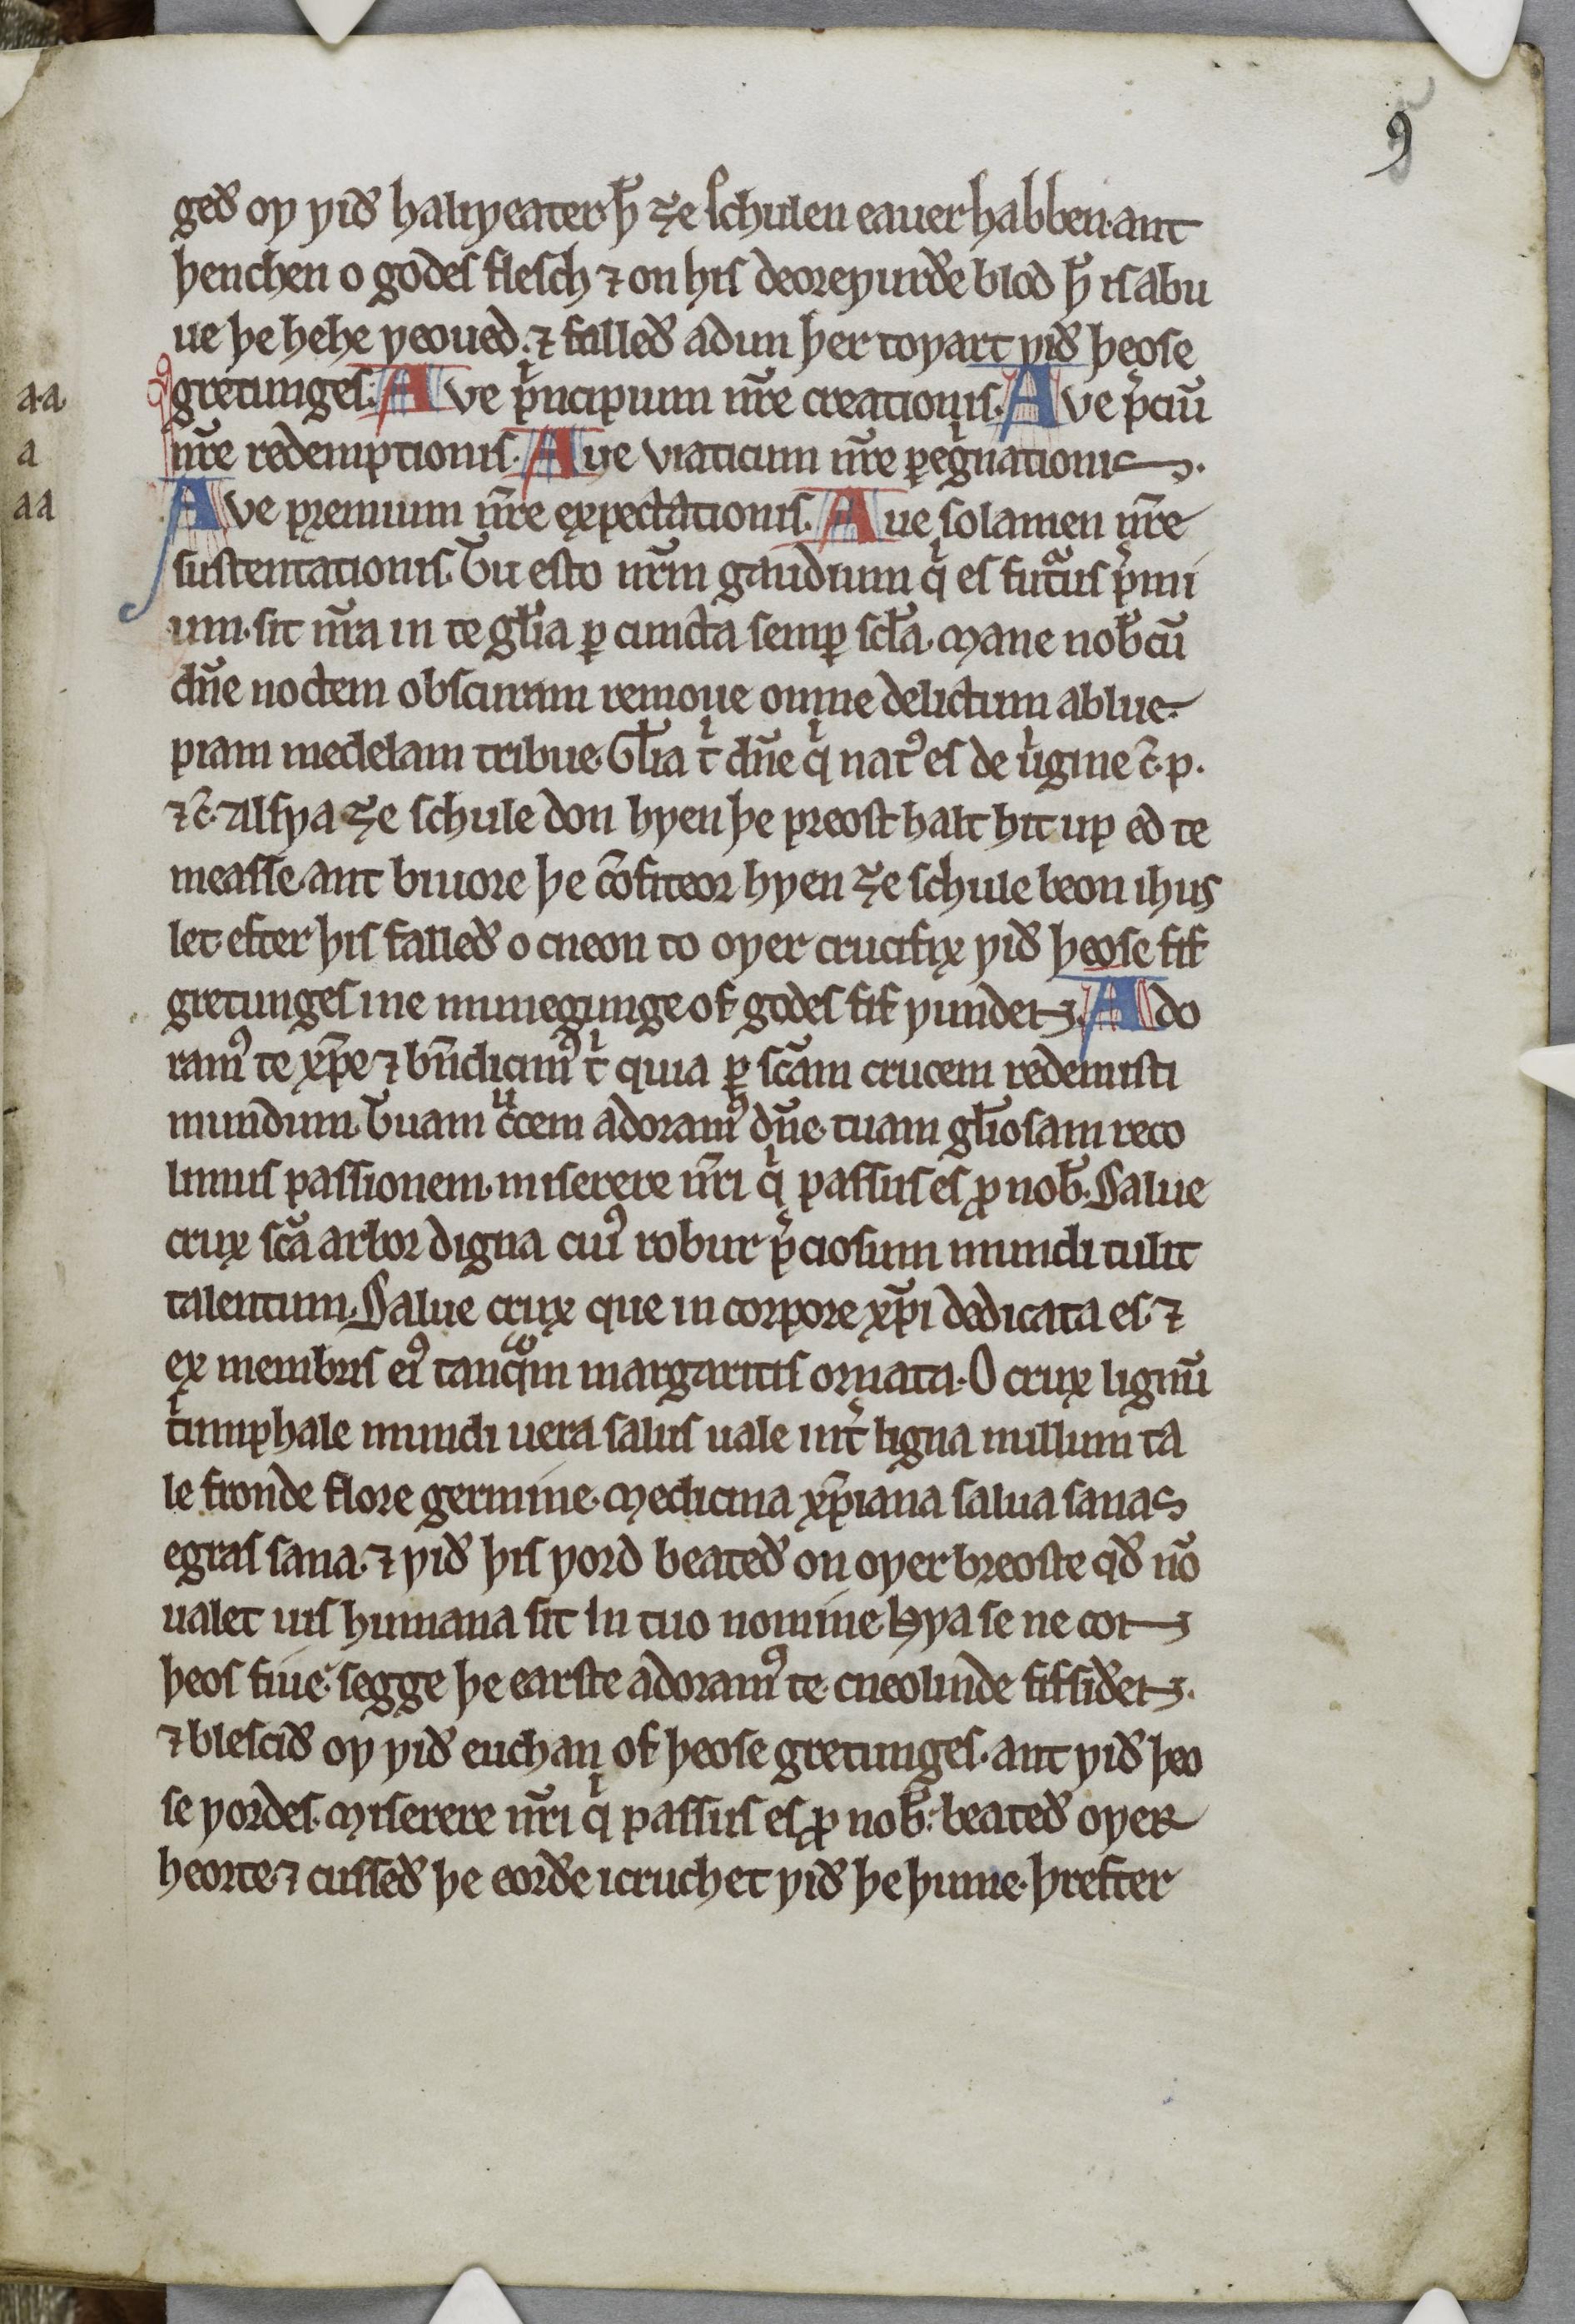 9
geð oƿ ƿið haliƿeater ꝥ ȝe schulen eauer habben. ant
þenchen o godes flesch ⁊ on his deoreƿurðe blod ꝥ is abu
ue þe hehe ƿeoued. ⁊ falleð adun þer toƿart ƿið þeose
gretunges: Ave pͥncipium nr̄e creationis. Ave p̄ciū
nr̄e redemptionis. Aue viaticum nr̄e ꝑegͥnationis.
Ave premium nr̄e expectationis. Aue solamen nr̄e
sustentationis. Tu esto nr̄m gaudium qͥ es futᵃus p̄mi
um. sit nr̄a in te gl̄ia ꝑ cuncta semꝑ scl̄a. Mane nob̄cū
dn̄e noctem obscuram remoue omne delictum ablue.
piam medelam tribue. Gl̄ia tͥ dn̄e qͥ natꝰ es de uͥgine c̄. p.
⁊c̄. Alsƿa ȝe schule don hƿen þe preost halt hit up ed te
measse. ant biuore þe c̄ofiteor hƿen ȝe schule beon ihus
let. efter þis falleð o cneon to oƿer crucifix ƿið þeose fif
gretunges ine munegunge of godes fif ƿundes. Ado
ramꝰ te xp̄e ⁊ bn̄dicimꝰ tͥ quia ꝑ sc̄am crucem redemisti
mundum. Tuam cᵘcem adoramꝰ dn̄e. tuam gl̄iosam reco
limus passionem. miserere nr̄i qͥ passus es ꝓ nob̄. Salue
crux sc̄a arbor digna cuiꝰ robur p̄ciosum mundi tulit
talentum. Salue crux que in corpore xp̄i dedicata es. ⁊
ex membris eiꝰ tanqᵃm margaritis ornata. O crux lignū
tͥumphale mundi uera salus uale int̄ ligna nullum ta
le fronde flore germine. Medicina xp̄iana salua sanas
egras sana. ⁊ ƿið þis ƿord beateð on oƿer breoste qð nō
ualet uis humana sit In tuo nomine. Hƿa se ne con
þeos fiue. segge þe earste adoramꝰ te. cneolinde fif siðes.
⁊ blescið oƿ ƿið euchan of þeose gretunges. ant ƿið þeo
se ƿordes. Miserere nr̄i qͥ passus es ꝓ nob̄: beateð oƿer
heorte. ⁊ cusseð þe eorðe icruchet ƿið þe þume. þrefter
a·a
a
aa